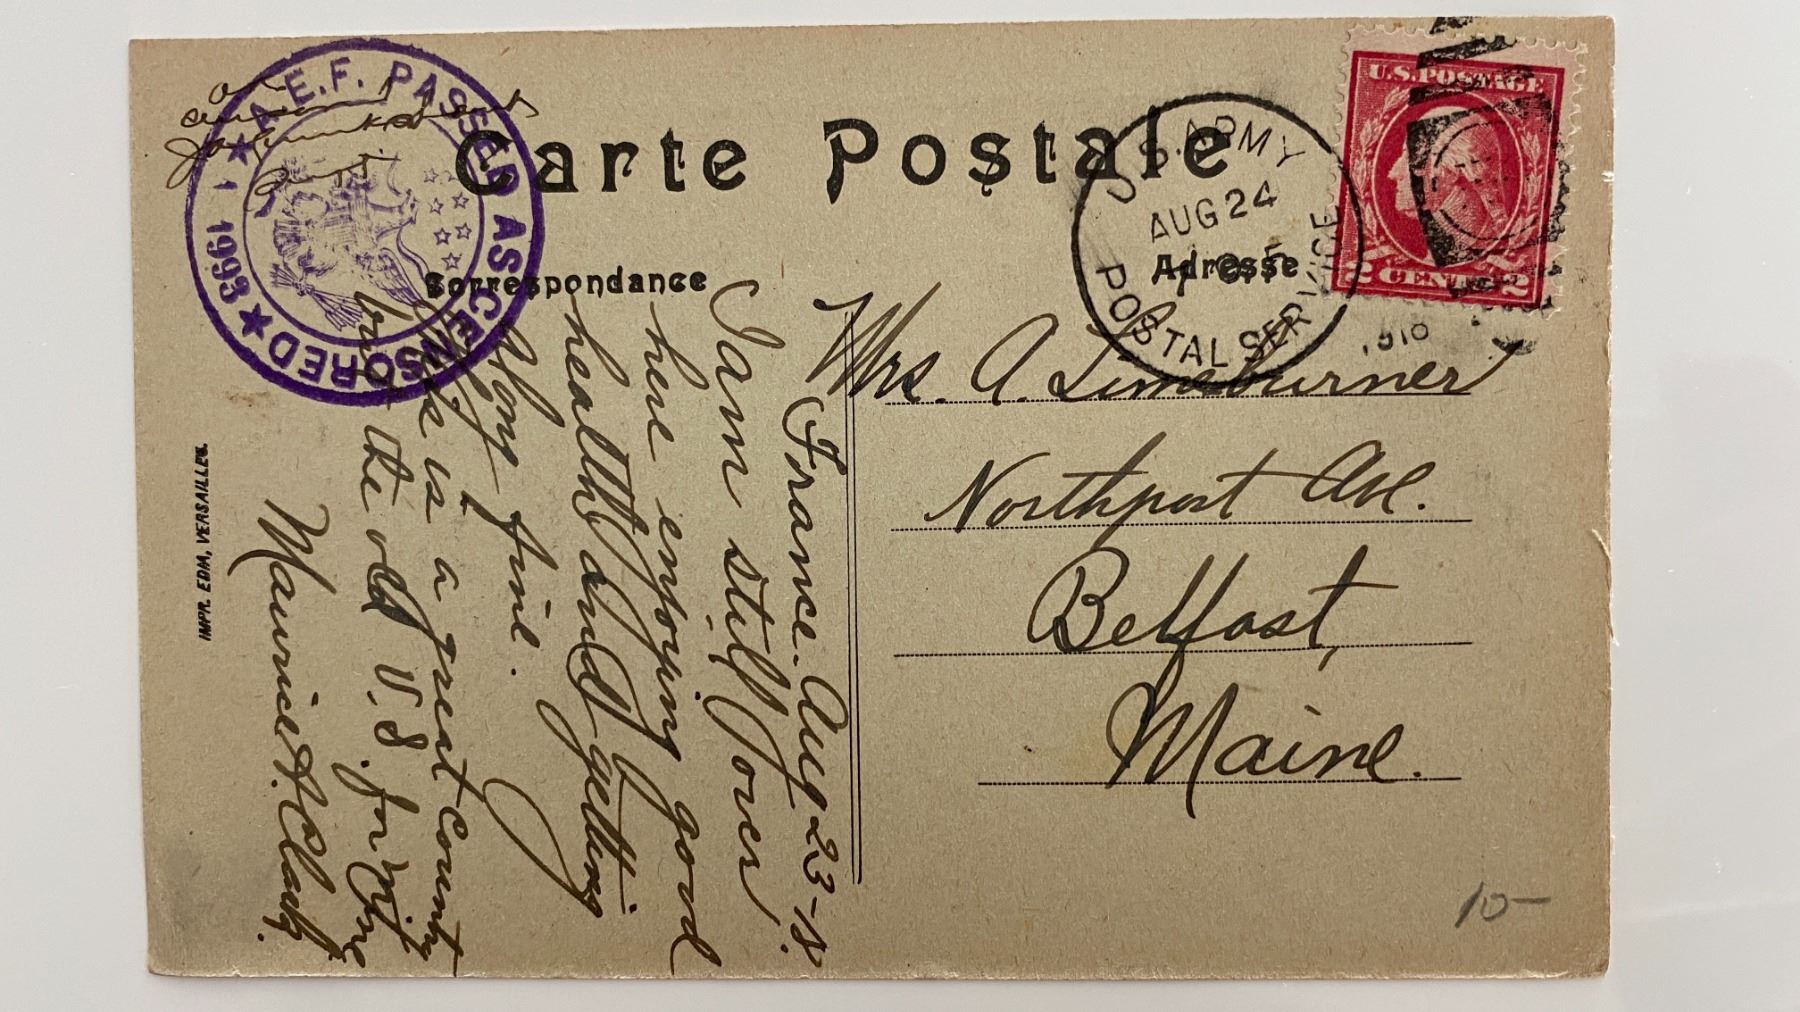 Carte Postale
Correspondance
Adresse
A.E.F. PASSED AS CENSORED
1993
U.S. ARMY
POSTAL SERVICE
AUG 24
1918
U.S. POSTAGE
2 CENTS 2
Mrs. A. Limeburner
Northport Ave.
Belfast,
Maine.
France. Aug 23-18.
I am still over
here enjoying good
health and getting
along fine.
This is a great country
but the old U.S. for me
Maurice A. Clark.
IMPR. EDM, VERSAILLES.
10-